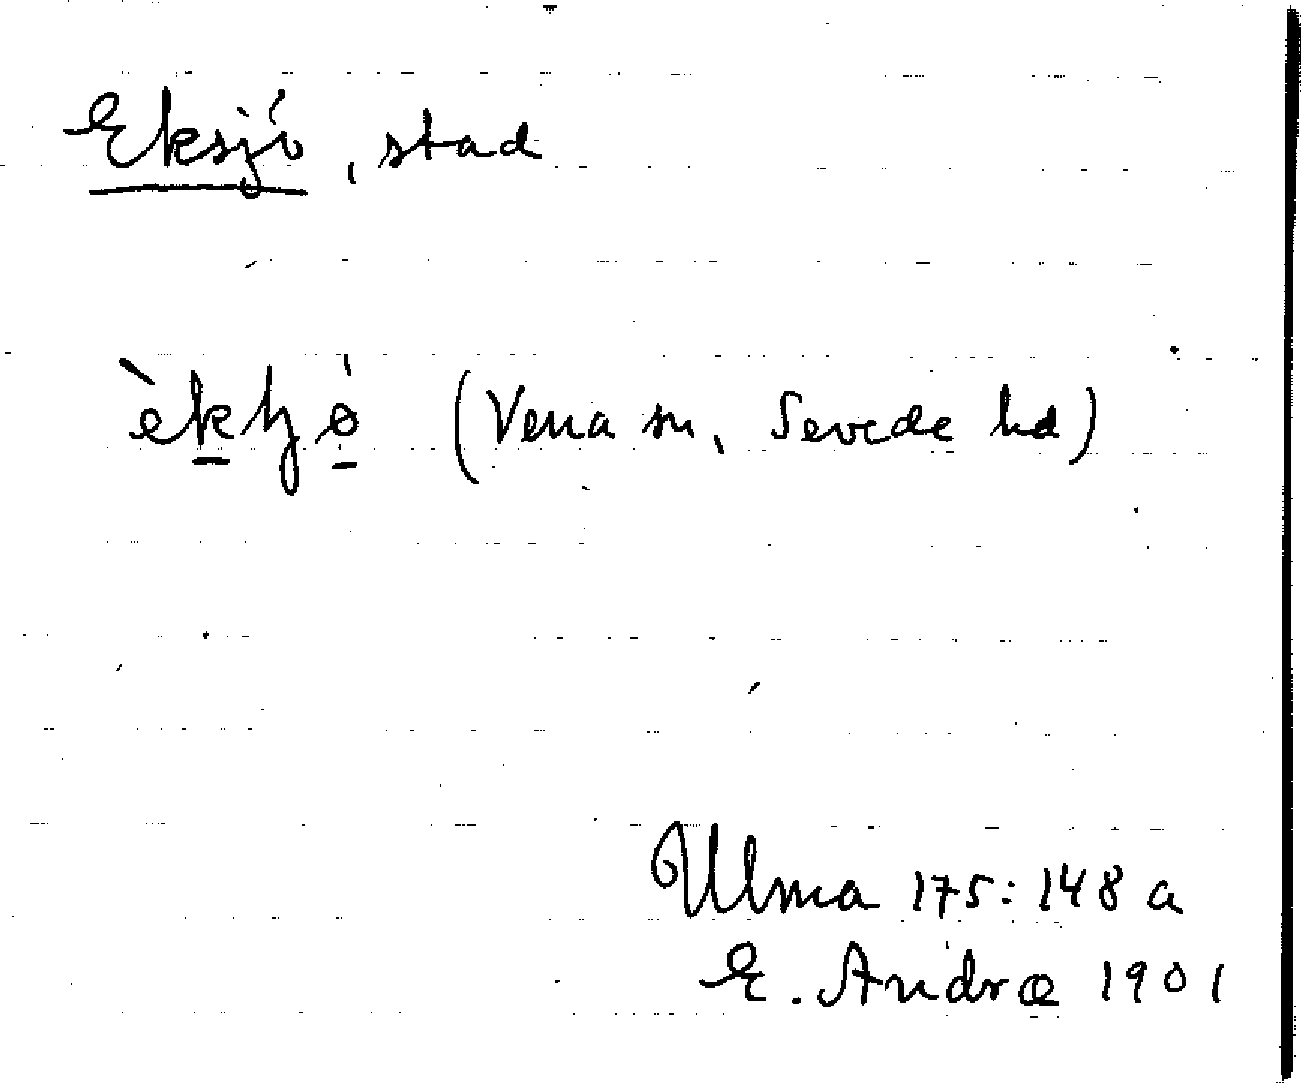 Eksjö, stad
(Vena sn, Sevede hd)
Ulma 175:148 a
E. Andræ 1901